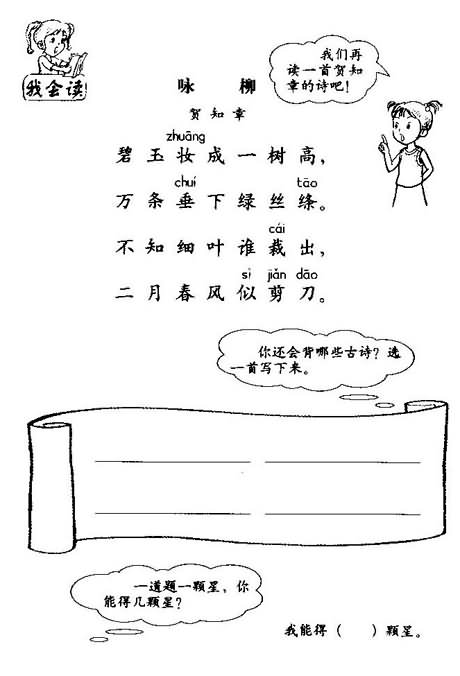 我会读!
我们再
读一首贺知
章的诗吧!
咏 柳
贺知章
zhuāng
碧玉妆成一树高,
chuí tāo
万条垂下绿丝绦。
cái
不知细叶谁裁出,
sì jiǎn dāo
二月春风似剪刀。
你还会背哪些古诗?选
一首写下来。
一道题一颗星,你
能得几颗星?
我能得( )颗星。